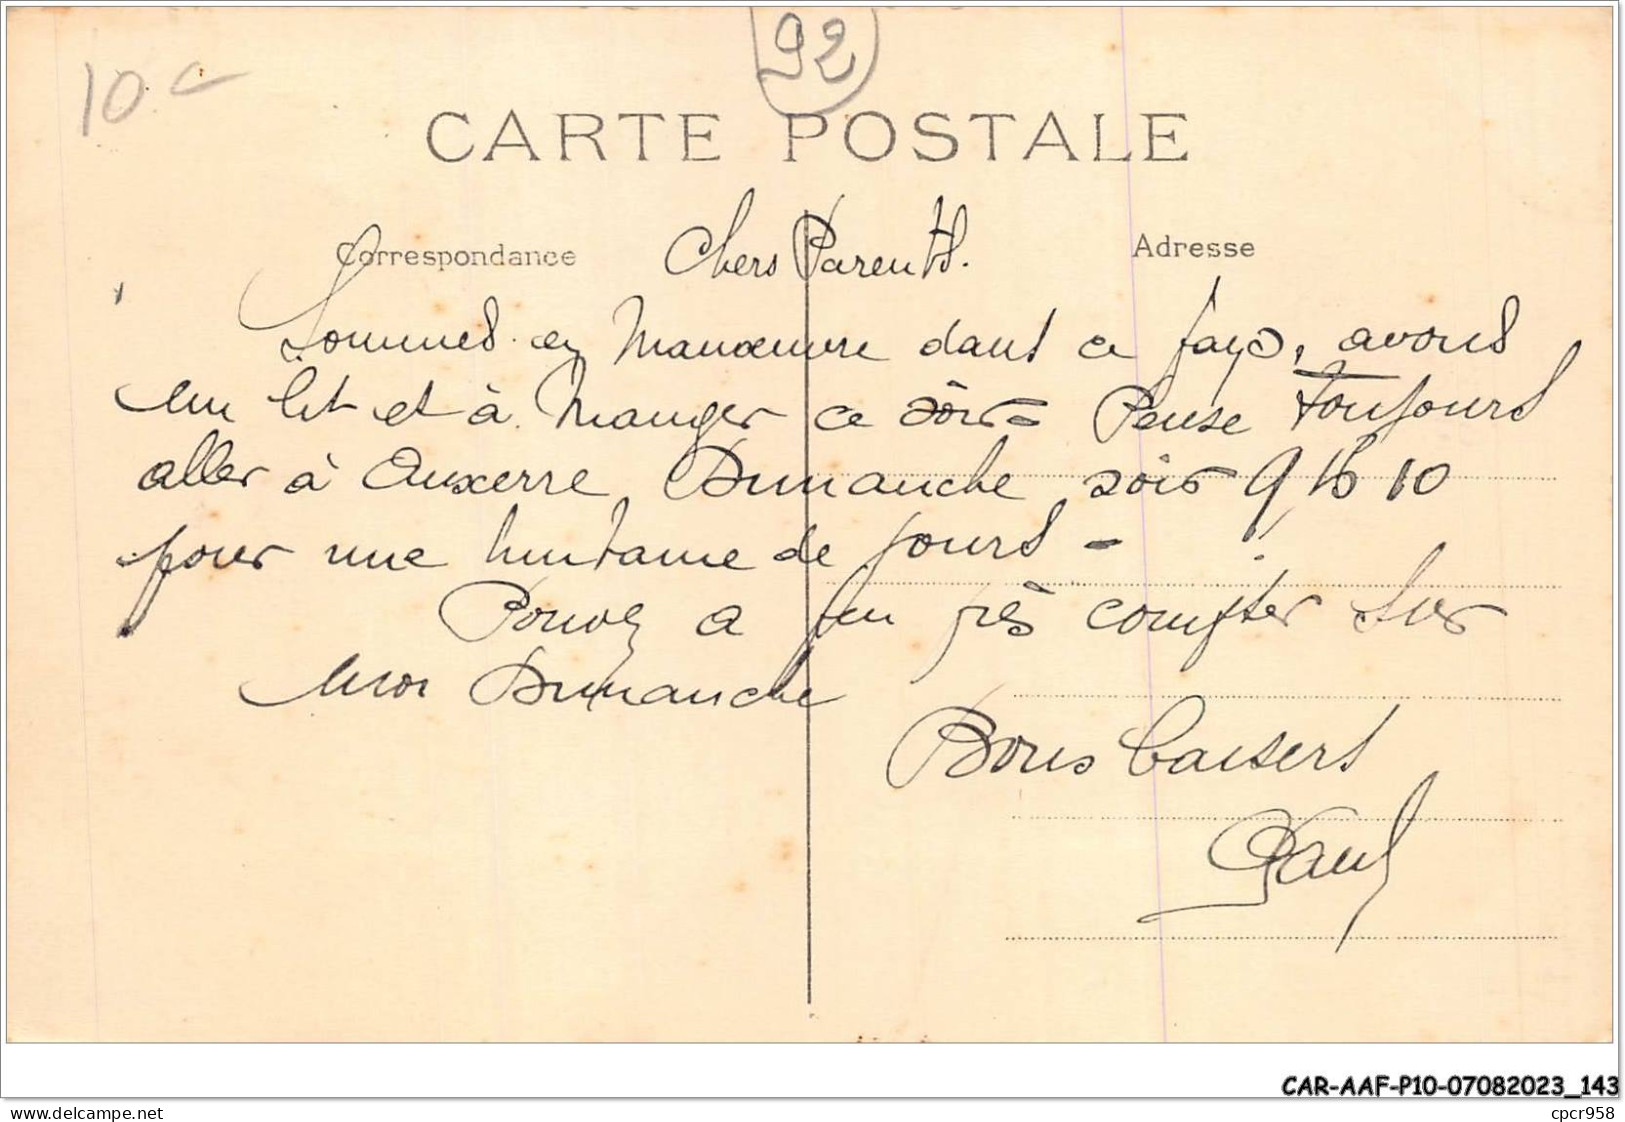 10 c
92
CARTE POSTALE
Correspondance
Adresse
Chers Parents.
Sommes en Manœuvre dans ce pays, avons
un lit et à Manger ce soir = Pense toujours
aller à Auxerre Dimanche soir 9 h 10
pour une huitaine de jours -
Pouvez a peu près compter sur
moi Dimanche
Bons baisers
Paul
CAR-AAF-P10-07082023_143
www.delcampe.net
cpcr958